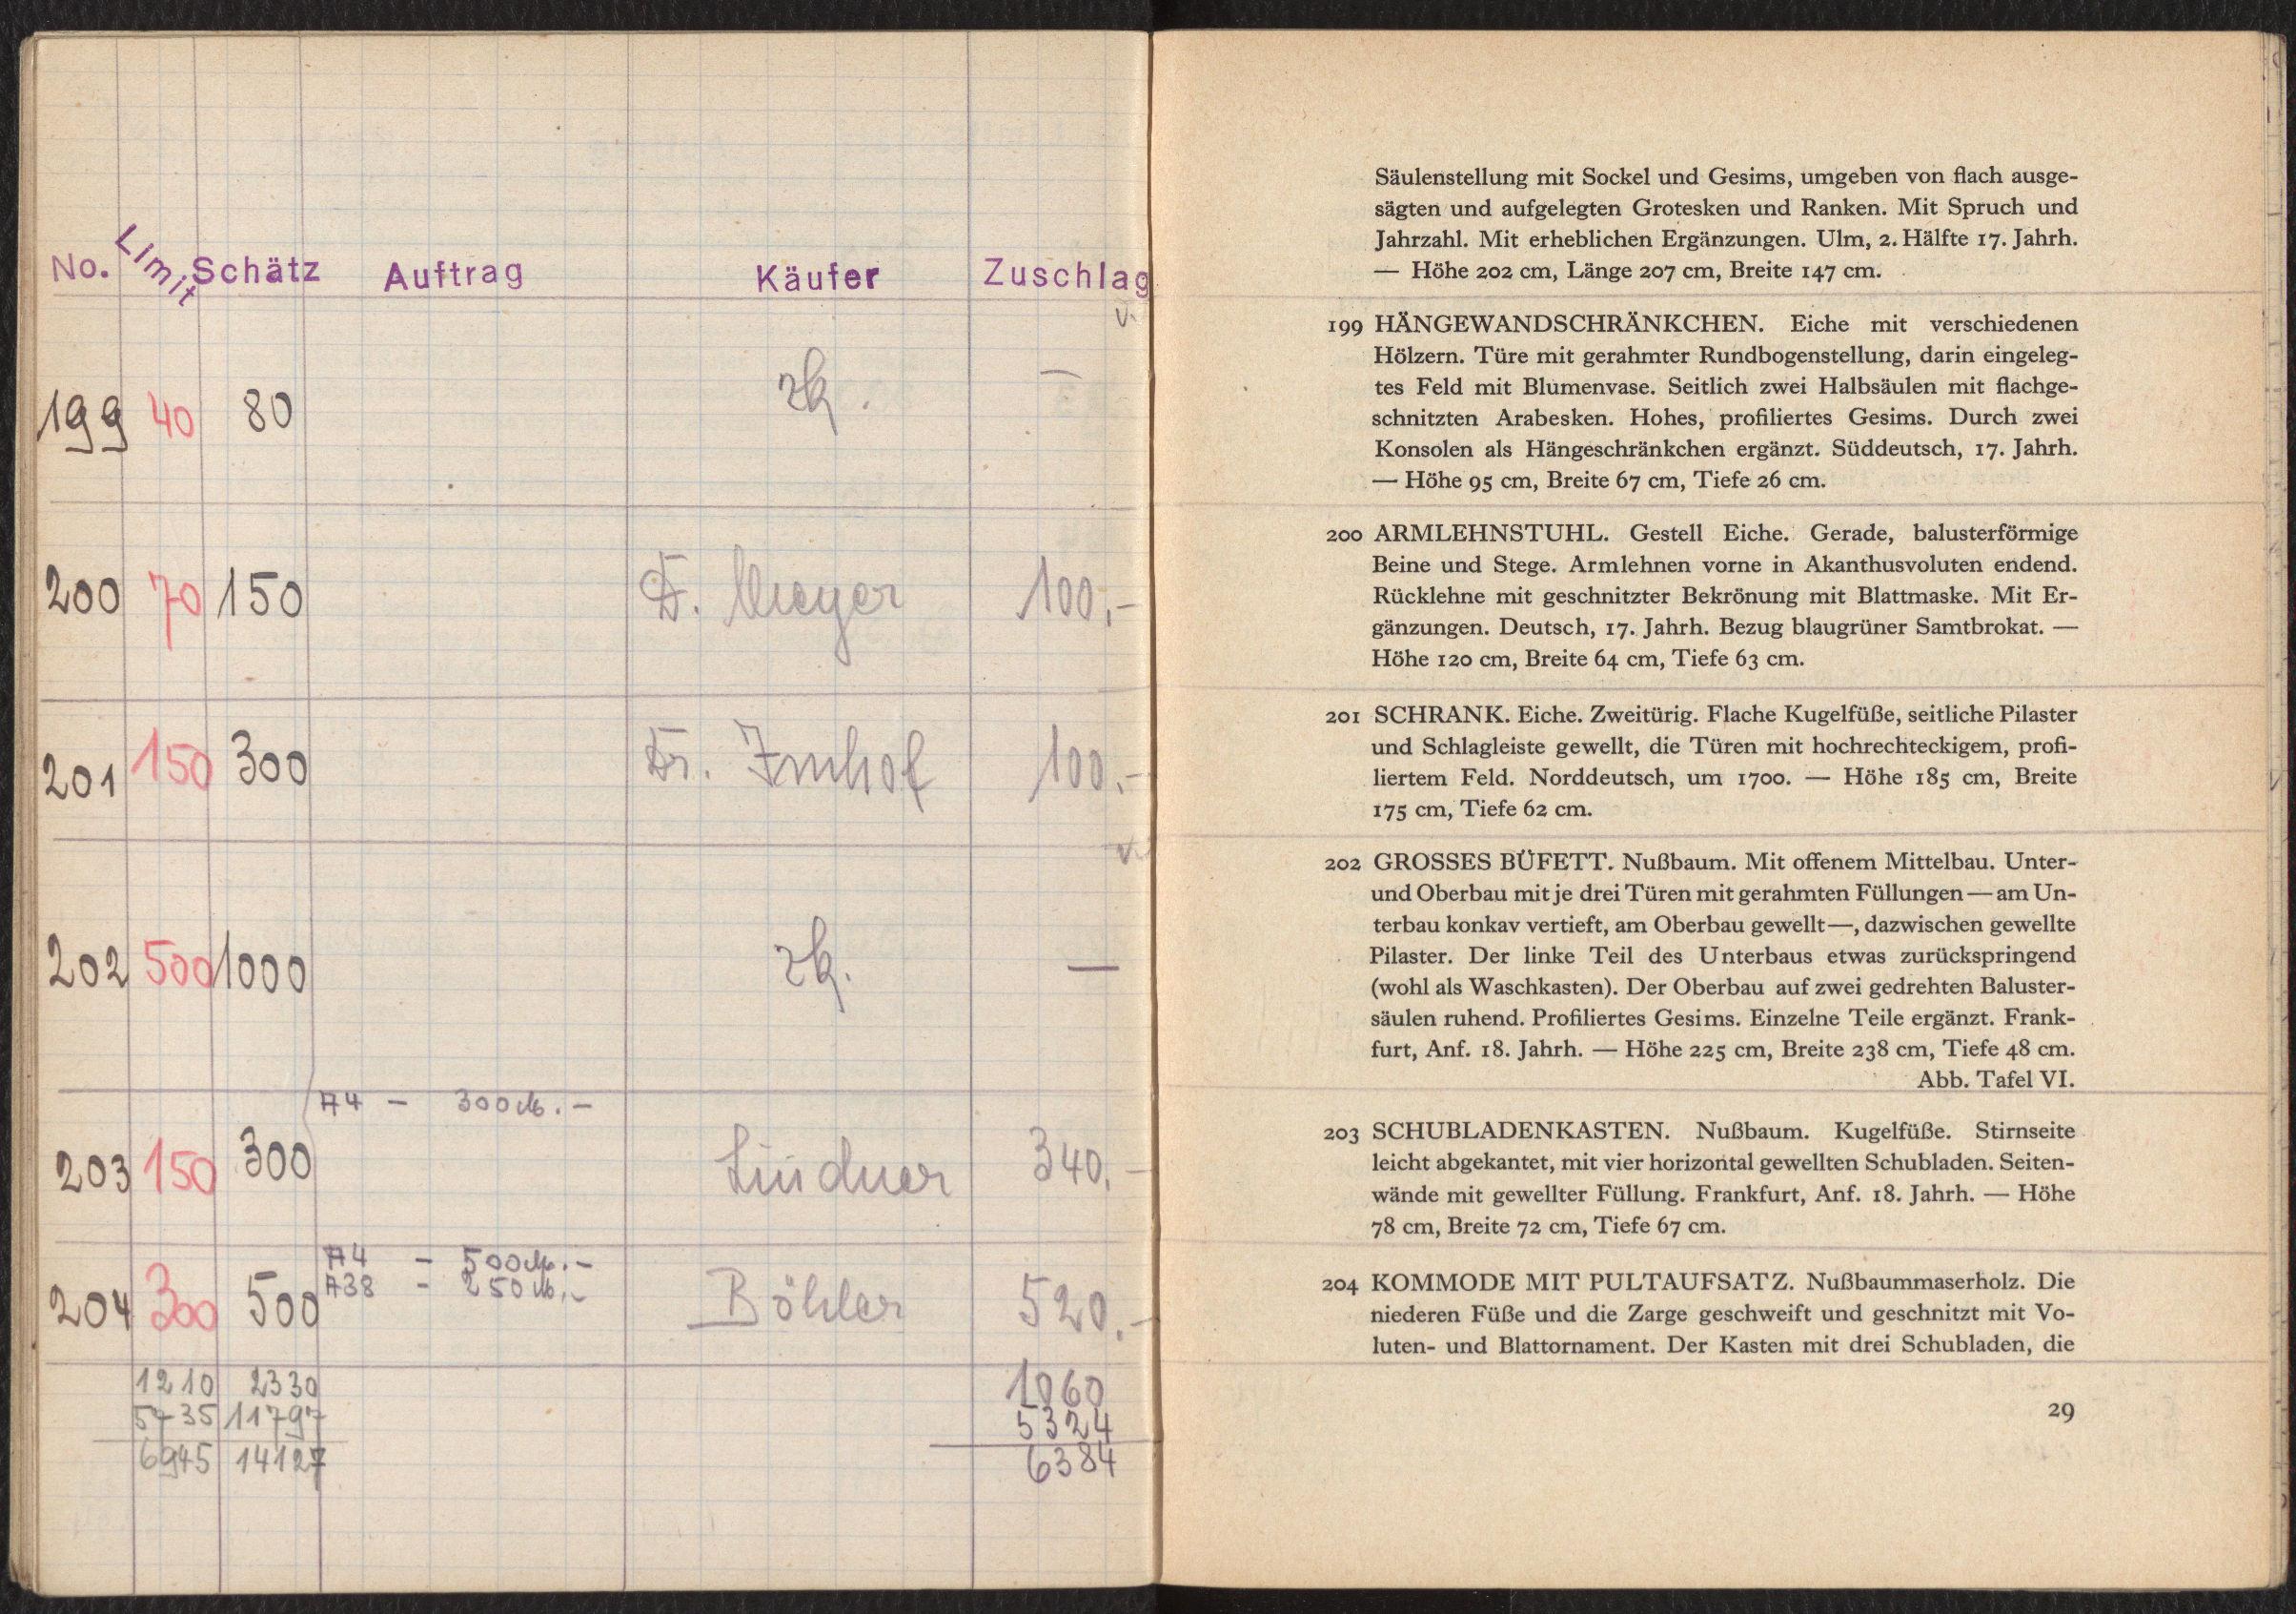 No. Limit Schätz Auftrag Käufer Zuschlag
v.
199 40 80 zk. —
200 70 150 D. Meyer 100.-
201 150 300 Dr. Imhof 100.-
v.
202 500 1000 zk. —
A4 - 300 M. -
203 150 300 Lindner 340.-
A4 - 500 M. -
A38 - 250 M. -
204 300 500 Böhler 520.-
1210 2330 1060
5735 11797 5324
6945 14127 6384
Säulenstellung mit Sockel und Gesims, umgeben von flach ausge-
sägten und aufgelegten Grotesken und Ranken. Mit Spruch und
Jahrzahl. Mit erheblichen Ergänzungen. Ulm, 2. Hälfte 17. Jahrh.
— Höhe 202 cm, Länge 207 cm, Breite 147 cm.
199 HÄNGEWANDSCHRÄNKCHEN. Eiche mit verschiedenen
Hölzern. Türe mit gerahmter Rundbogenstellung, darin eingeleg-
tes Feld mit Blumenvase. Seitlich zwei Halbsäulen mit flachge-
schnitzten Arabesken. Hohes, profiliertes Gesims. Durch zwei
Konsolen als Hängeschränkchen ergänzt. Süddeutsch, 17. Jahrh.
— Höhe 95 cm, Breite 67 cm, Tiefe 26 cm.
200 ARMLEHNSTUHL. Gestell Eiche. Gerade, balusterförmige
Beine und Stege. Armlehnen vorne in Akanthusvoluten endend.
Rücklehne mit geschnitzter Bekrönung mit Blattmaske. Mit Er-
gänzungen. Deutsch, 17. Jahrh. Bezug blaugrüner Samtbrokat. —
Höhe 120 cm, Breite 64 cm, Tiefe 63 cm.
201 SCHRANK. Eiche. Zweitürig. Flache Kugelfüße, seitliche Pilaster
und Schlagleiste gewellt, die Türen mit hochrechteckigem, profi-
liertem Feld. Norddeutsch, um 1700. — Höhe 185 cm, Breite
175 cm, Tiefe 62 cm.
202 GROSSES BÜFETT. Nußbaum. Mit offenem Mittelbau. Unter-
und Oberbau mit je drei Türen mit gerahmten Füllungen — am Un-
terbau konkav vertieft, am Oberbau gewellt —, dazwischen gewellte
Pilaster. Der linke Teil des Unterbaus etwas zurückspringend
(wohl als Waschkasten). Der Oberbau auf zwei gedrehten Baluster-
säulen ruhend. Profiliertes Gesims. Einzelne Teile ergänzt. Frank-
furt, Anf. 18. Jahrh. — Höhe 225 cm, Breite 238 cm, Tiefe 48 cm.
Abb. Tafel VI.
203 SCHUBLADENKASTEN. Nußbaum. Kugelfüße. Stirnseite
leicht abgekantet, mit vier horizontal gewellten Schubladen. Seiten-
wände mit gewellter Füllung. Frankfurt, Anf. 18. Jahrh. — Höhe
78 cm, Breite 72 cm, Tiefe 67 cm.
204 KOMMODE MIT PULTAUFSATZ. Nußbaummaserholz. Die
niederen Füße und die Zarge geschweift und geschnitzt mit Vo-
luten- und Blattornament. Der Kasten mit drei Schubladen, die
29